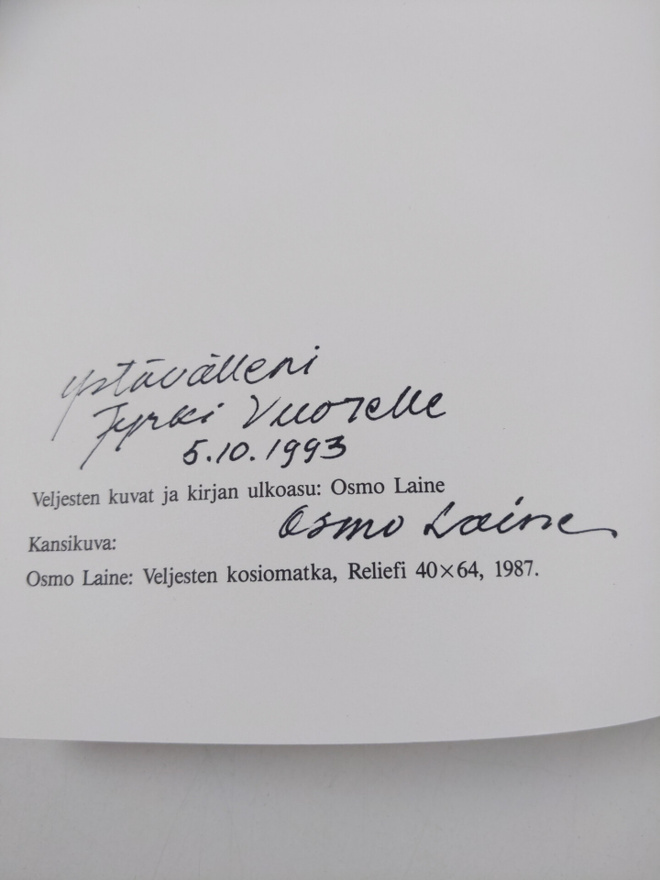 ystävälleni
Jyrki Vuorelle
5.10.1993
Veljesten kuvat ja kirjan ulkoasu: Osmo Laine
Osmo Laine
Kansikuva:
Osmo Laine: Veljesten kosiomatka, Reliefi 40×64, 1987.